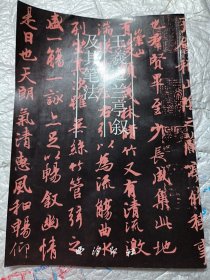 王羲之兰亭叙
及其笔法
也羣賢畢至少長咸集此地
茂林脩竹又有清流激
左右引以為流觴曲水
列坐其次雖無絲竹管弦之
盛一觴一詠亦足以暢叙幽情
是日也天朗氣清惠風和暢仰
西泠印社